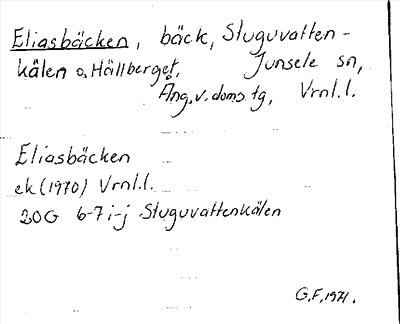 Eliasbäcken, bäck, Stuguvatten-
kälen o. Hällberget, Junsele sn,
Ång. v. doms. tg, Vrnl.l.
Eliasbäcken
ek (1970) Vrnl.l.
20G 6-7 i-j Stuguvattenkälen
G.F. 1971.